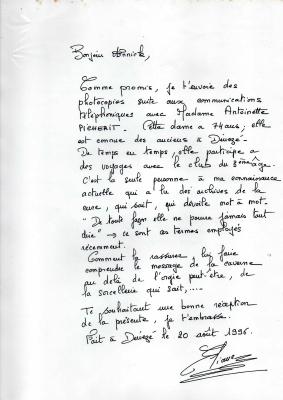 Bonjour Annick,
Comme promis, je t'envoie des
photocopies suite aux communications
téléphoniques avec Madame Antoinette
PICHERIT. Cette dame a 74 ans; elle
est connue des anciens à Denezé.
De temps en temps, elle participe à
des voyages avec le club du 3ème âge.
C'est la seule personne à ma connaissance
actuelle qui a lu des archives de la
cure, qui sait, qui dévoile mot à mot.
"De toute façon elle ne pourra jamais tout
dire" → ce sont les termes employés
récemment.
Comment la rassurer, lui faire
comprendre le message de la caverne
au delà de l'orgie peut-être, de
la sorcellerie qui sait,....
Te souhaitant une bonne réception
de la présente, je t'embrasse.
Fait à Denezé le 20 août 1996.